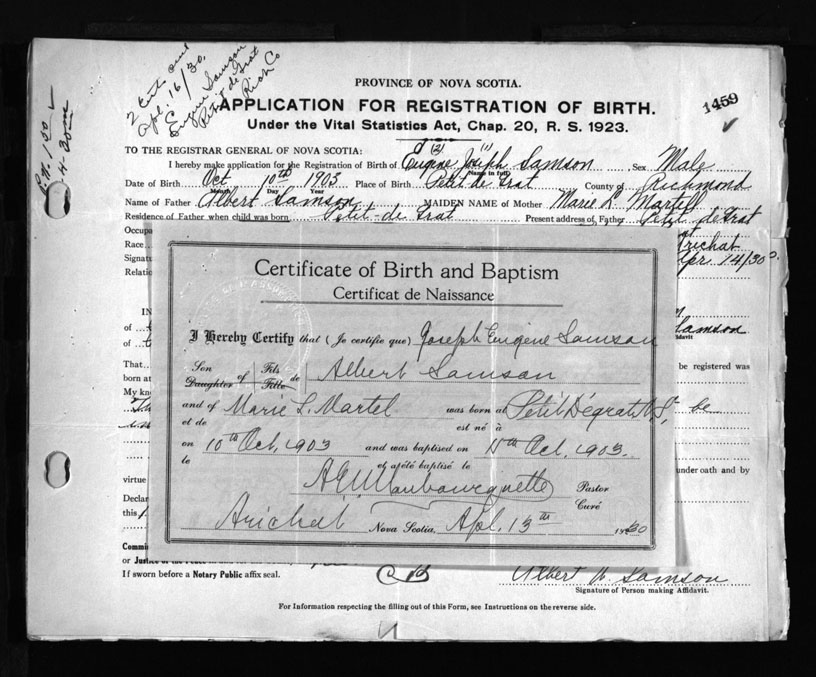 2 Certs and
Apl. 16/30.
Eugene Samson
Petit de Grat
Rich Co
P.N. 1 30
PROVINCE OF NOVA SCOTIA.
APPLICATION FOR REGISTRATION OF BIRTH.
1459
Under the Vital Statistics Act, Chap. 20, R. S. 1923.
TO THE REGISTRAR GENERAL OF NOVA SCOTIA:
(2) (1)
I hereby make application for the Registration of Birth of Eugene Joseph Samson Sex Male
(Name in full)
Date of Birth Oct 10th 1903 Place of Birth Petit de Grat County of Richmond
Month Day Year
Name of Father Albert Samson MAIDEN NAME of Mother Marie L. Martell
Residence of Father when child was born Petit-de Grat Present address of Father Petit deGrat
Occupa
Race
Arichat
Signatu
Apr 14/30
Relatio
IN
of
Samson
of
davit
That
be registered was
born at
My kno
be
under oath and by
virtue
Declar
this
Certificate of Birth and Baptism
Certificat de Naissance
I Hereby Certify that (Je certifie que) Joseph Eugene Samson
Son Fils
Daughter of Fille de Albert Samson
and of Marie L. Martel was born at Petit Dégrat N.S.
et de est né à
on 10th Oct, 1903 and was baptised on 11th Oct, 1903.
le et a été baptisé le
Pastor
Curé
Arichat Nova Scotia, Apl. 13th 1930
Commi
or Justice of the Peace
If sworn before a Notary Public affix seal.
Albert W. Samson
Signature of Person making Affidavit.
For Information respecting the filling out of this Form, see Instructions on the reverse side.